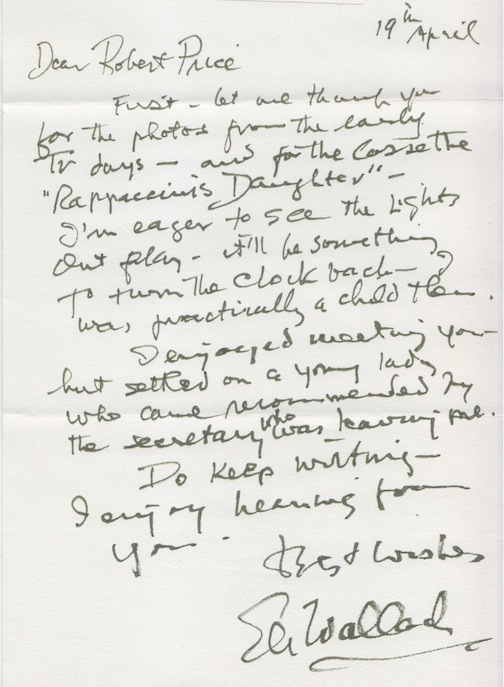 19th April
Dear Robert Price
First - let me thank you
for the photos from the early
TV days - and for the cassette
"Rappaccini's Daughter" -
I'm eager to see the Lights
Out play - it'll be something
to turn the clock back - I
was practically a child then.
I enjoyed meeting you -
but settled on a young lady
who came recommended by
the secretary who was leaving me.
Do keep writing -
I enjoy hearing from
you.
Best wishes
Eli Wallach